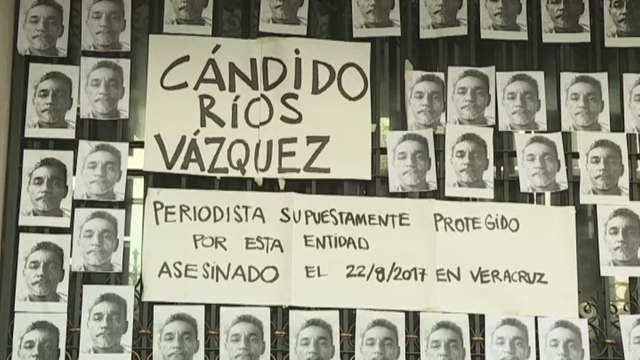 CÁNDIDO
RÍOS
VÁZQUEZ
PERIODISTA SUPUESTAMENTE PROTEGIDO
POR ESTA ENTIDAD
ASESINADO EL 22/8/2017 EN VERACRUZ